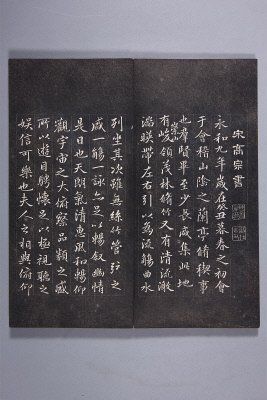 宋高宗書
永和九年歲在癸丑暮春之初會
于會稽山陰之蘭亭脩禊事
也羣賢畢至少長咸集此地
有崇山峻領茂林脩竹又有清流激
湍暎帶左右引以為流觴曲水
列坐其次雖無絲竹管弦之
盛一觴一詠亦足以暢叙幽情
是日也天朗氣清惠風和暢仰
觀宇宙之大俯察品類之盛
所以遊目騁懷足以極視聽之
娛信可樂也夫人之相與俯仰